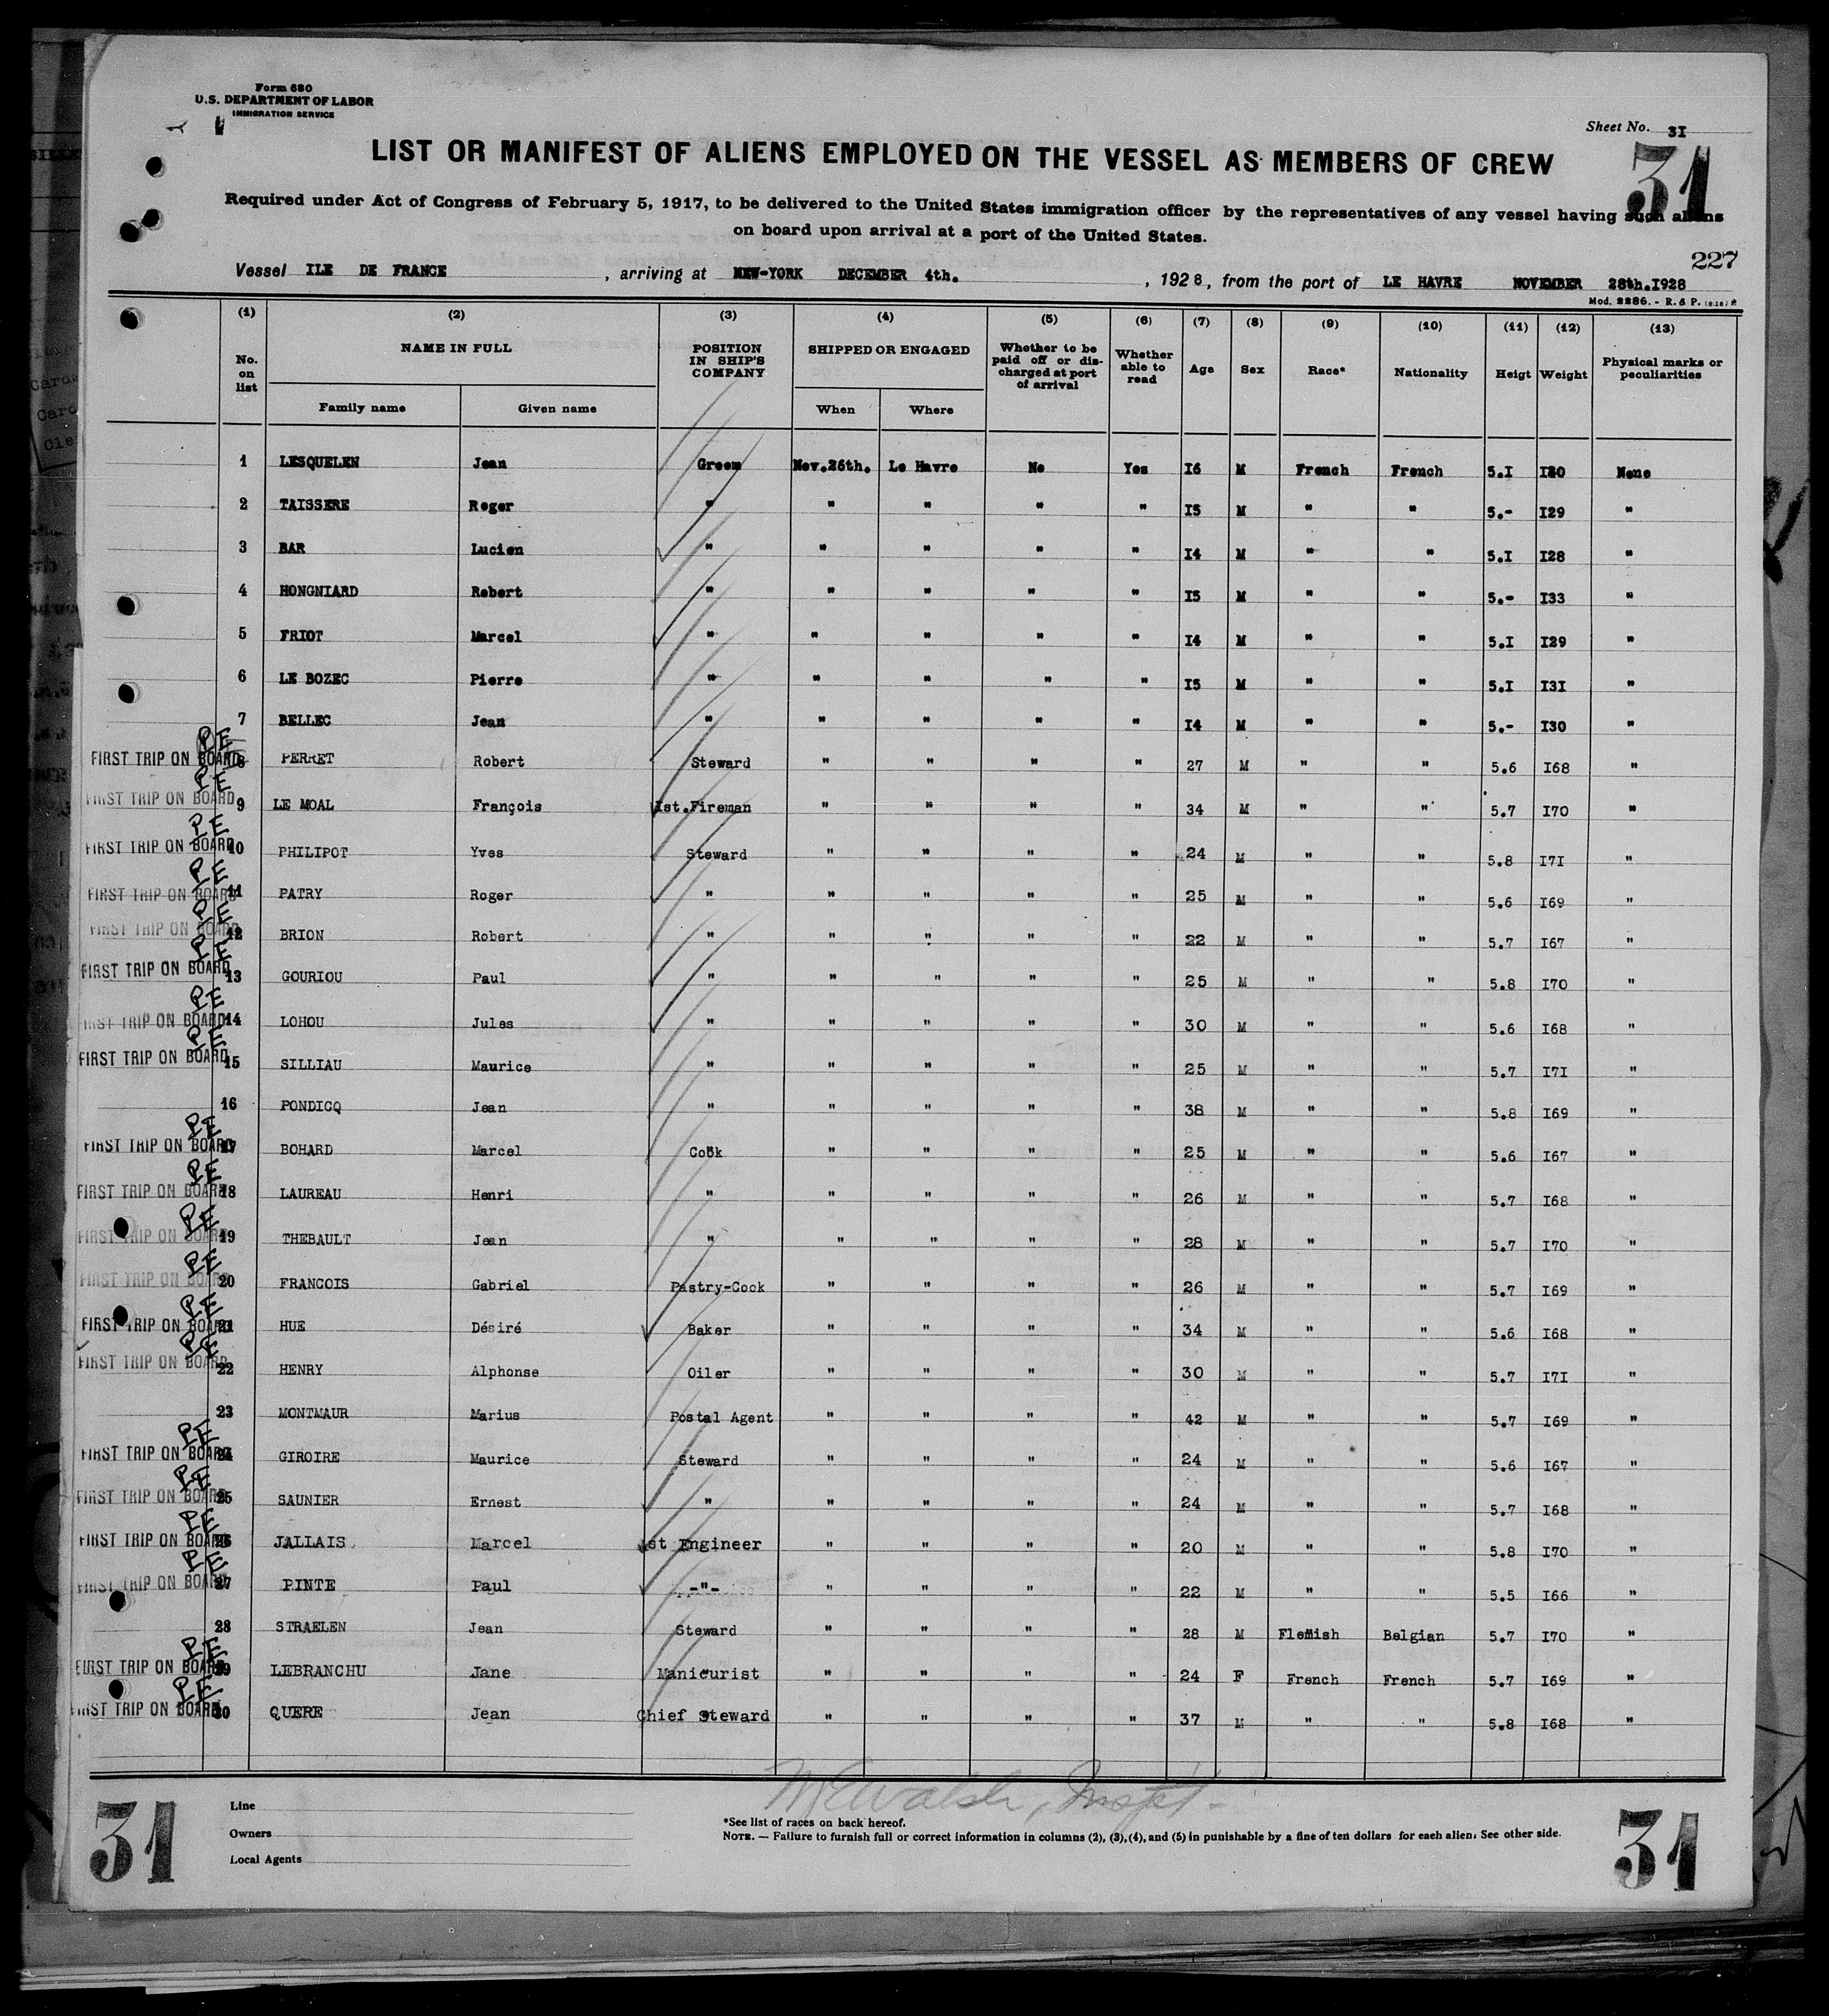 Form 680
U.S. DEPARTMENT OF LABOR
IMMIGRATION SERVICE
Sheet No. 3I
31
LIST OR MANIFEST OF ALIENS EMPLOYED ON THE VESSEL AS MEMBERS OF CREW
Required under Act of Congress of February 5, 1917, to be delivered to the United States immigration officer by the representatives of any vessel having such aliens
on board upon arrival at a port of the United States.
227
Vessel ILE DE FRANCE , arriving at NEW-YORK DECEMBER 4th. , 1928, from the port of LE HAVRE NOVEMBER 28th.I928
Mod. 2286. - R. & P.
(1) (2) (3) (4) (5) (6) (7) (8) (9) (10) (11) (12) (13)
No. on list NAME IN FULL POSITION IN SHIP'S COMPANY SHIPPED OR ENGAGED Whether to be paid off or discharged at port of arrival Whether able to read Age Sex Race* Nationality Heigt Weight Physical marks or peculiarities
Family name Given name When Where
1 LESQUELEN Jean Groom Nov.26th. Le Havre No Yes I6 M French French 5.I I30 None
2 TAISSERE Roger " " " " " I5 M " " 5.- I29 "
3 BAR Lucien " " " " " I4 M " " 5.I I28 "
4 HONGNIARD Robert " " " " " I5 M " " 5.- I33 "
5 FRIOT Marcel " " " " " I4 M " " 5.I I29 "
6 LE BOZEC Pierre " " " " " I5 M " " 5.I I3I "
7 BELLEC Jean " " " " " I4 M " " 5.- I30 "
FIRST TRIP ON BOARD PE 8 PERRET Robert Steward " " " " 27 M " " 5.6 I68 "
FIRST TRIP ON BOARD PE 9 LE MOAL François Ist.Fireman " " " " 34 M " " 5.7 I70 "
FIRST TRIP ON BOARD PE 10 PHILIPOT Yves Steward " " " " 24 M " " 5.8 I7I "
FIRST TRIP ON BOARD PE 11 PATRY Roger " " " " " 25 M " " 5.6 I69 "
FIRST TRIP ON BOARD PE 12 BRION Robert " " " " " 22 M " " 5.7 I67 "
FIRST TRIP ON BOARD PE 13 GOURIOU Paul " " " " " 25 M " " 5.8 I70 "
FIRST TRIP ON BOARD PE 14 LOHOU Jules " " " " " 30 M " " 5.6 I68 "
FIRST TRIP ON BOARD PE 15 SILLIAU Maurice " " " " " 25 M " " 5.7 I7I "
16 PONDICQ Jean " " " " " 38 M " " 5.8 I69 "
FIRST TRIP ON BOARD PE 17 BOHARD Marcel Cook " " " " 25 M " " 5.6 I67 "
FIRST TRIP ON BOARD PE 18 LAUREAU Henri " " " " " 26 M " " 5.7 I68 "
FIRST TRIP ON BOARD PE 19 THEBAULT Jean " " " " " 28 M " " 5.7 I70 "
FIRST TRIP ON BOARD PE 20 FRANCOIS Gabriel Pastry-Cook " " " " 26 M " " 5.7 I69 "
FIRST TRIP ON BOARD PE 21 HUE Désiré Baker " " " " 34 M " " 5.6 I68 "
FIRST TRIP ON BOARD PE 22 HENRY Alphonse Oiler " " " " 30 M " " 5.7 I7I "
23 MONTMAUR Marius Postal Agent " " " " 42 M " " 5.7 I69 "
FIRST TRIP ON BOARD PE 24 GIROIRE Maurice Steward " " " " 24 M " " 5.6 I67 "
FIRST TRIP ON BOARD PE 25 SAUNIER Ernest " " " " " 24 M " " 5.7 I68 "
FIRST TRIP ON BOARD PE 26 JALLAIS Marcel 1st Engineer " " " " 20 M " " 5.8 I70 "
FIRST TRIP ON BOARD PE 27 PINTE Paul -"- " " " " 22 M " " 5.5 I66 "
28 STRAELEN Jean Steward " " " " 28 M Flemish Belgian 5.7 I70 "
FIRST TRIP ON BOARD PE 29 LEBRANCHU Jane Manicurist " " " " 24 F French French 5.7 I69 "
FIRST TRIP ON BOARD PE 30 QUERE Jean Chief Steward " " " " 37 M " " 5.8 I68 "
31
Line
Owners
Local Agents
McWalsh, Insp't.
*See list of races on back hereof.
NOTE. — Failure to furnish full or correct information in columns (2), (3), (4), and (5) in punishable by a fine of ten dollars for each alien. See other side.
31